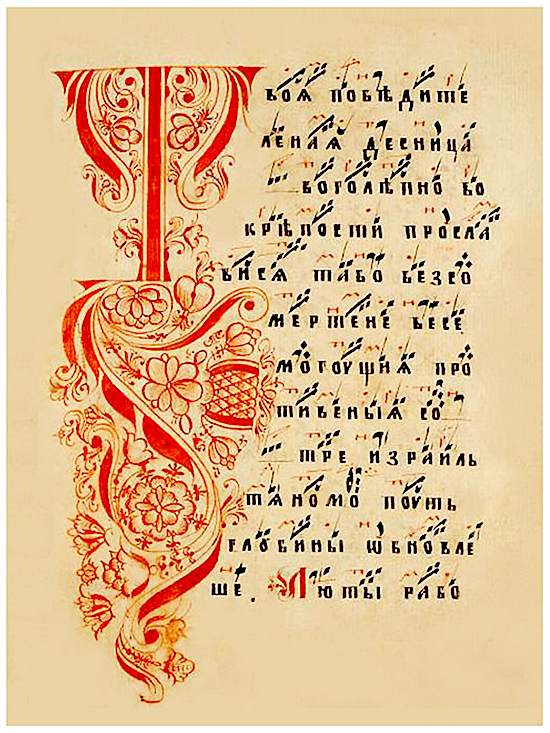 Твоѧ побѣдите
ленаѧ десница
боголѣпно во
крѣпости просла
висѧ табо безсо
мертене весе
могоущиѧ про
тивеныѧ со
тре израиль
тѧномо поуть
глоубины ѡбновле
ше. Люты рабо